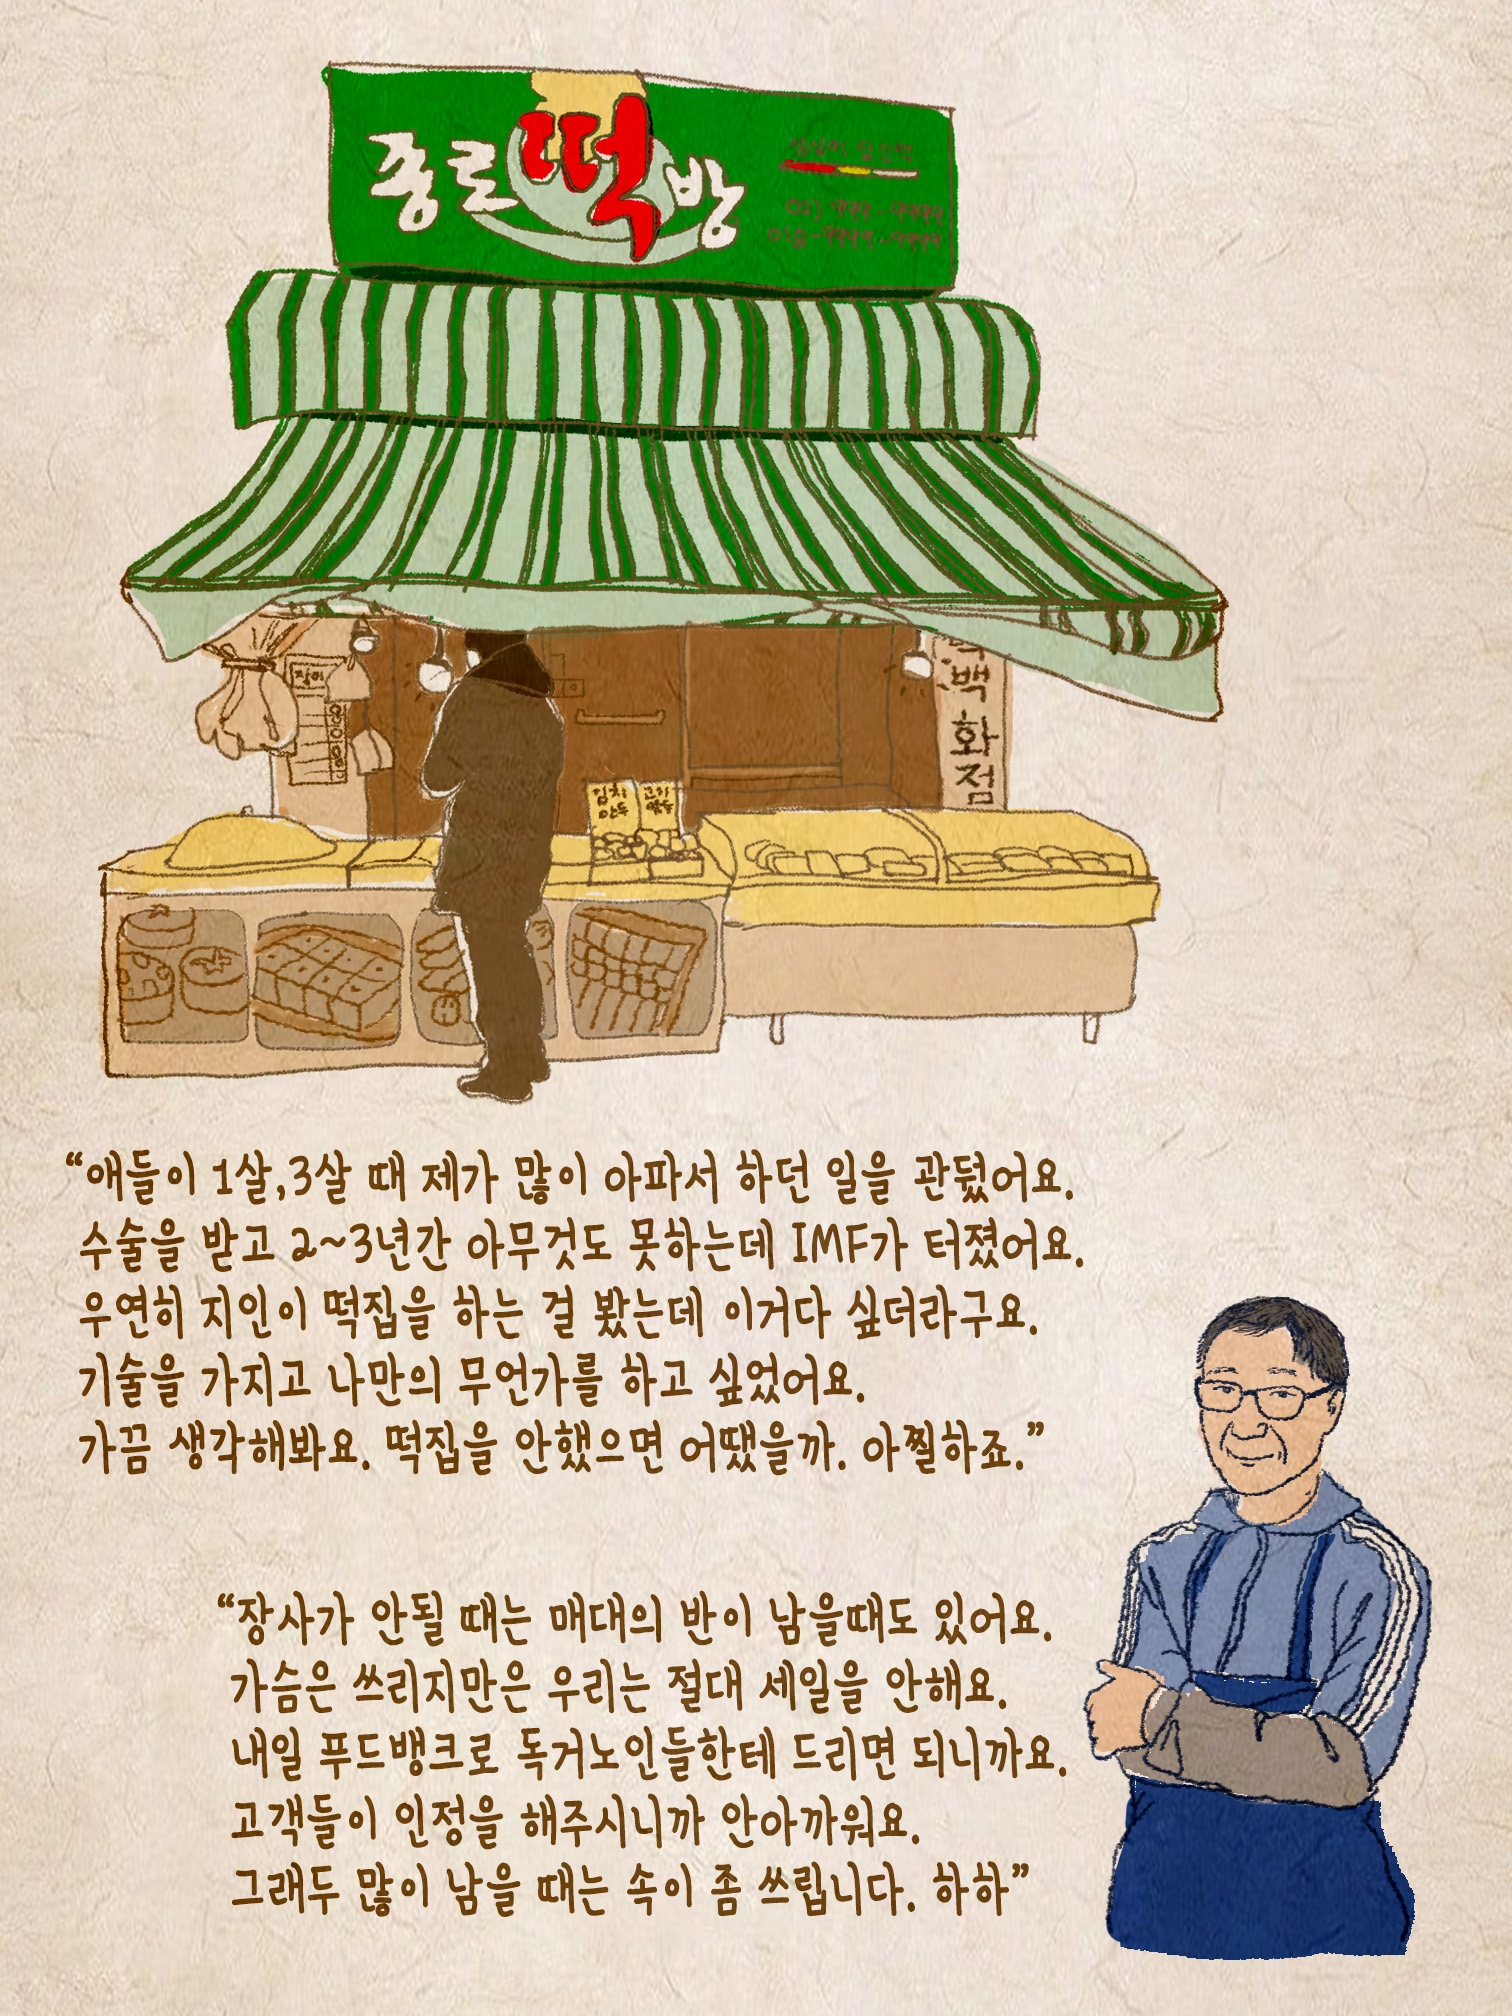 종로떡방
02) 999-9999
010-9999-9999
백화점
김치만두
고기만두
“애들이 1살,3살 때 제가 많이 아파서 하던 일을 관뒀어요.
수술을 받고 2~3년간 아무것도 못하는데 IMF가 터졌어요.
우연히 지인이 떡집을 하는 걸 봤는데 이거다 싶더라구요.
기술을 가지고 나만의 무언가를 하고 싶었어요.
가끔 생각해봐요. 떡집을 안했으면 어땠을까. 아찔하죠.”
“장사가 안될 때는 매대의 반이 남을때도 있어요.
가슴은 쓰리지만은 우리는 절대 세일을 안해요.
내일 푸드뱅크로 독거노인들한테 드리면 되니까요.
고객들이 인정을 해주시니까 안아까워요.
그래두 많이 남을 때는 속이 좀 쓰립니다. 하하”